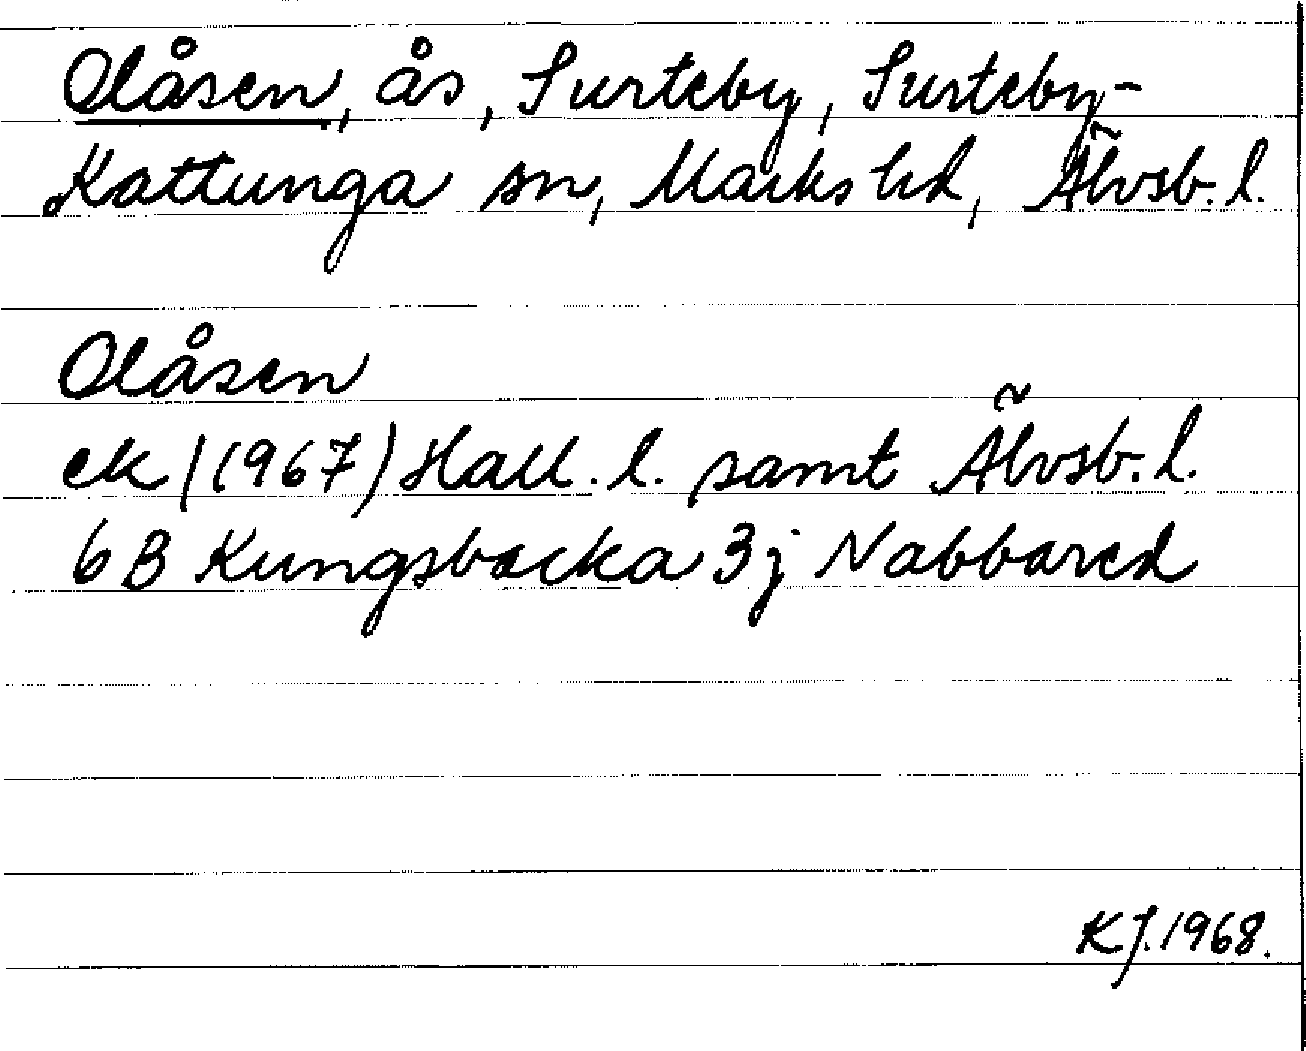 Olåsen, ås, Surteby, Surteby-
Kattunga sn, Marks hd, Älvsb. l.
Olåsen
ek (1967) Hall. l. samt Älvsb. l.
6 B Kungsbacka 3j Nabbared
KJ. 1968.